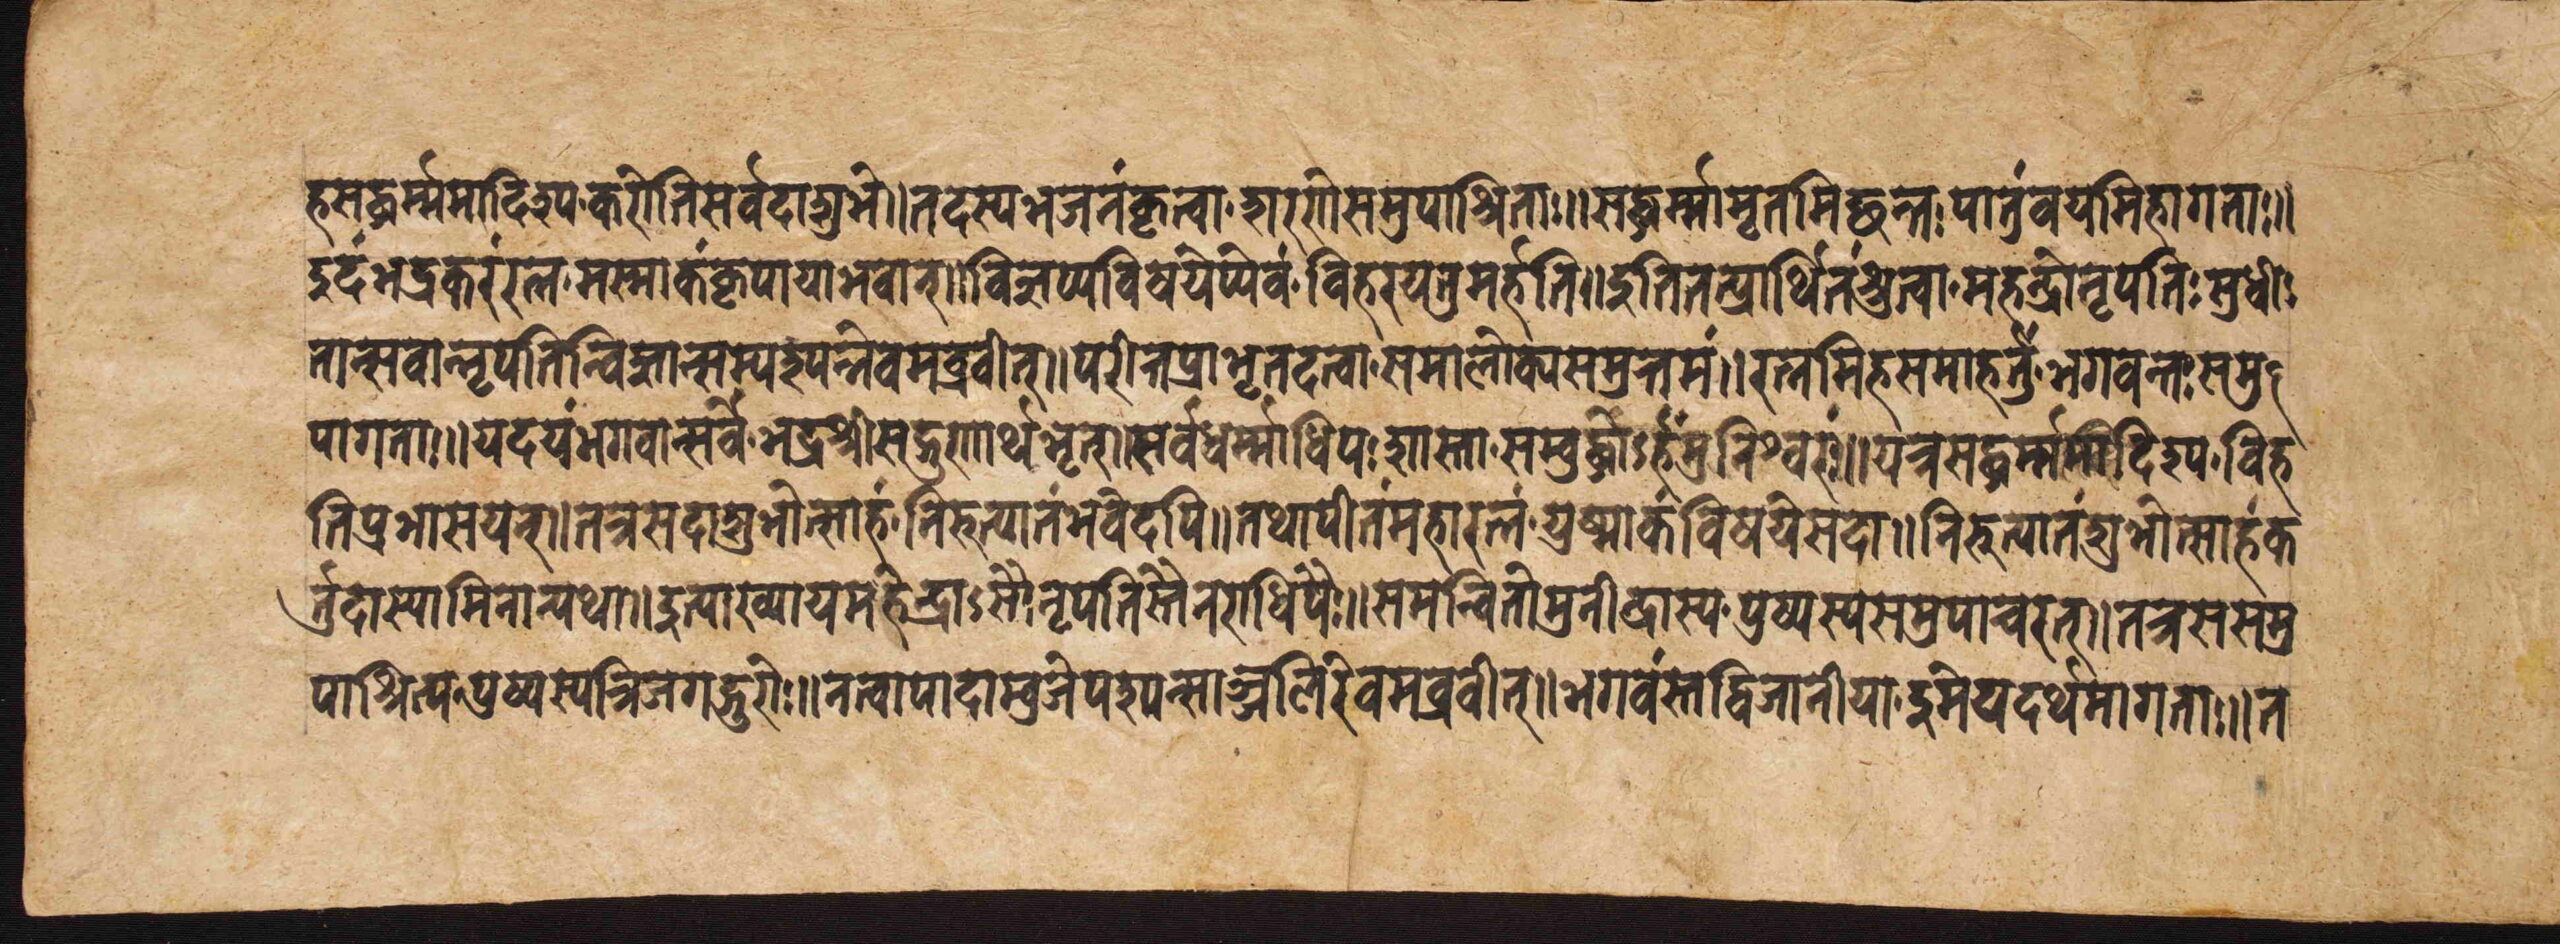 हसद्धर्म्ममादिश्य करोति सर्वदाशुभे॥ तदस्य भजनं कृत्वा शरणे समुपाश्रिताः॥ सद्धर्म्मामृतमिच्छन्तः पातुं वयमिहागताः॥
इदं भद्रकरं रत्न मस्माकं कृपाया भवान्॥ विज्ञप्य विषयेप्येवं विहारयतुमर्हति॥ इति तत्प्रार्थितं श्रुत्वा महेन्द्रो नृपतिः सुधीः
तान्सर्वान्नृपतिन्विज्ञान्सम्पश्यन्नेवमब्रवीत्॥ परोत्नप्राभृतं दत्वा समालोक्य समुत्तमं॥ रत्नमिह समाहर्तुं भगवन्तः समु
पागताः॥ यदयं भगवान्सर्व भद्रश्रीसद्गुणार्थभृत्॥ सर्वधर्म्माधिपः शास्ता सम्बुद्धोऽर्हंमुनिश्वरः॥ यत्र सद्धर्म्ममादिश्य विह
ति प्रभासयन्॥ तत्र सदा शुभोत्साहं निरुत्पातं भवेदपि॥ तथापीतं महारत्नं युष्माकं विषये सदा॥ निरुत्पातं शुभोत्साहं क
र्तुं दास्यामि नान्यथा॥ इत्याख्याय महेन्द्रोऽसौ नृपतिस्तैर्नराधिपैः॥ समन्वितो मुनीन्द्रास्य पुष्यस्य समुपाचरत्॥ तत्र स समु
पाश्रित्य पुष्यस्य त्रिजगद्गुरोः॥ नत्वा पादाम्बुजे पश्यन्साञ्जलिरेवमब्रवीत्॥ भगवंस्तद्विजानीया इमे यदर्थमागताः॥ त